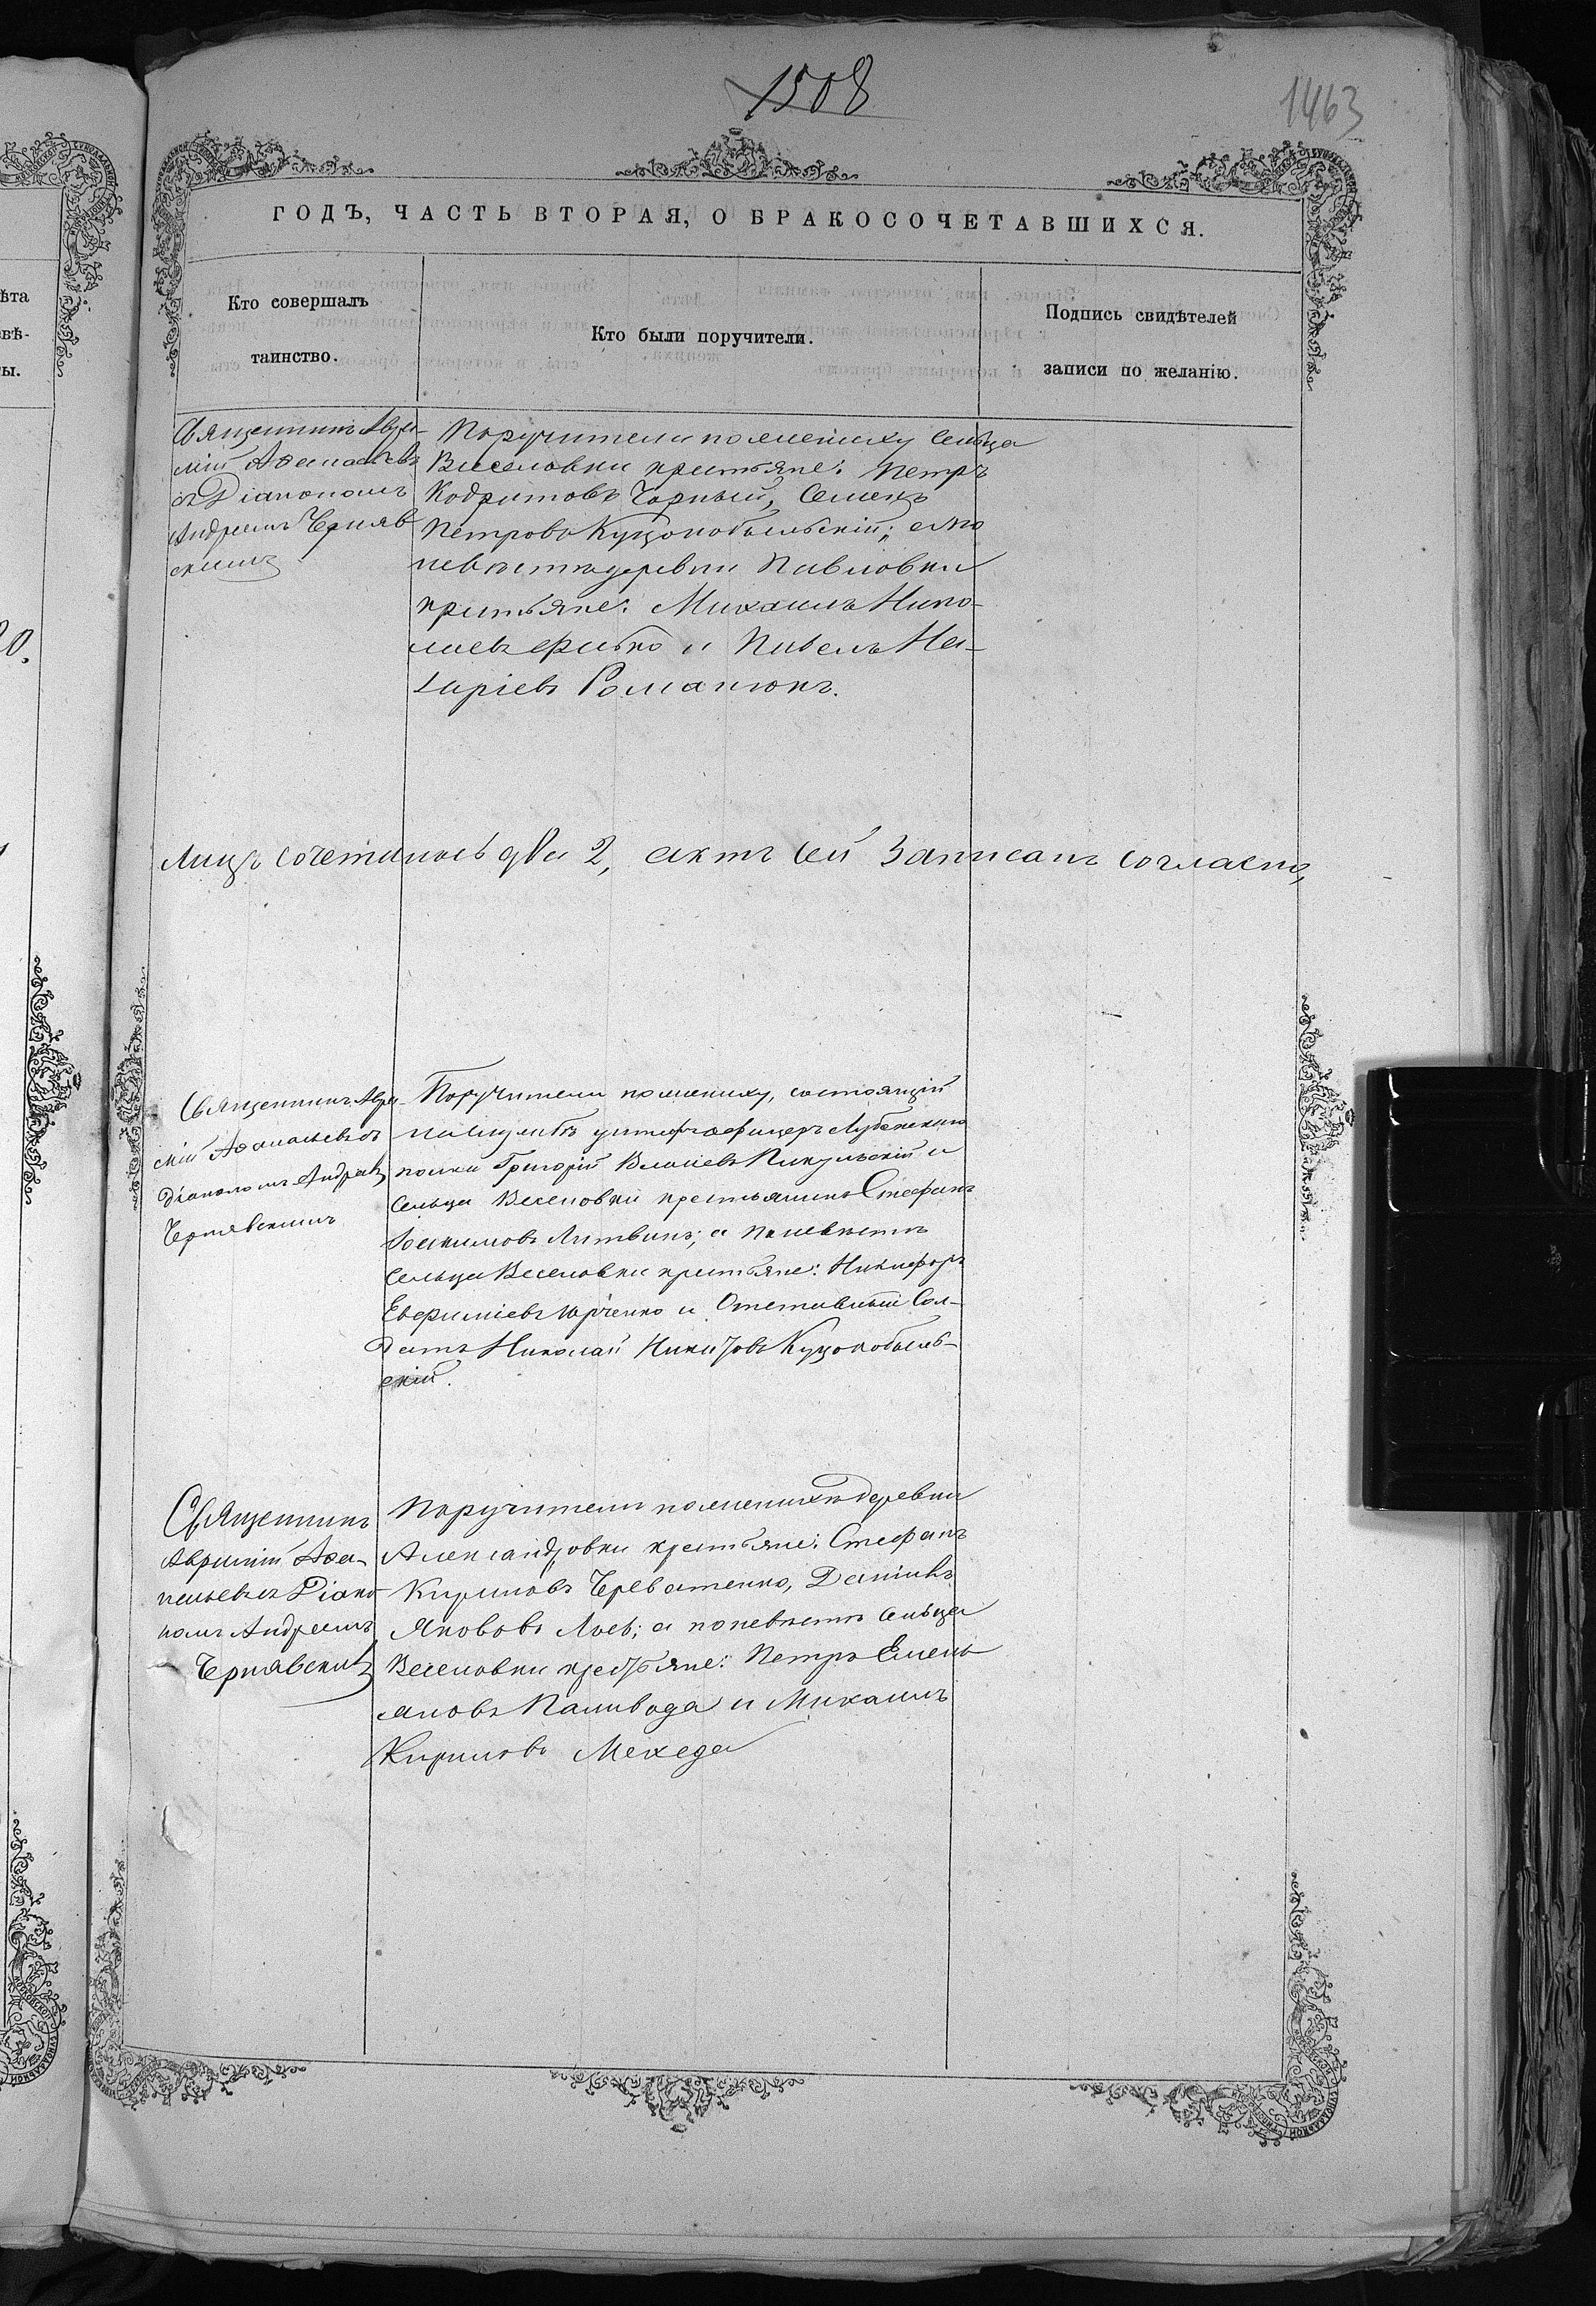 1508
1463
ГОДЪ, ЧАСТЬ ВТОРАЯ, О БРАКОСОЧЕТАВШИХСЯ.
ѣта
вѣ-
ы.
Кто совершалъ
таинство.
Кто были поручители.
Подпись свидѣтелей
записи по желанію.
Священникъ
съ Діакономъ
Андреемъ Черняв
скимъ
Поручители по жениху сельца
Веселовки крестьяне: Петръ
Кодратовъ Чорный, Семенъ
Петровъ Куцокобыльскій; а по
невѣстѣ деревни Павловки
крестьяне: Михаилъ Нико-
лаевъ и Павелъ На-
заріевъ Романюкъ.
Лицъ сочеталось два 2, актъ сей записанъ согласно,
Священникъ
Діакономъ Андреемъ
Чернявскимъ
Поручители по жениху, состоящій
унтеръ офицеръ Лубенскаго
полка Григорій Власіевъ Пикульскій и
сельца Веселовки крестьянинъ Стефанъ
Іоакимовъ Литвинъ; а по невѣстѣ
сельца Веселовки крестьяне: Никифоръ
Евфиміевъ Юрченко и Отставный Сол-
датъ Николай Никитовъ Куцокобыль-
скій.
Священникъ
Аѳа-
насьевъ съ Діако
номъ Андреемъ
Чернявскимъ
Поручители по женихѣ деревни
Александровки крестьяне: Стефанъ
Кириловъ Череватенко, Даніилъ
Якововъ а по невѣстѣ сельца
Веселовки крестьяне: Петръ Емель
яновъ Паливода и Михаилъ
Кириловъ Мехеда